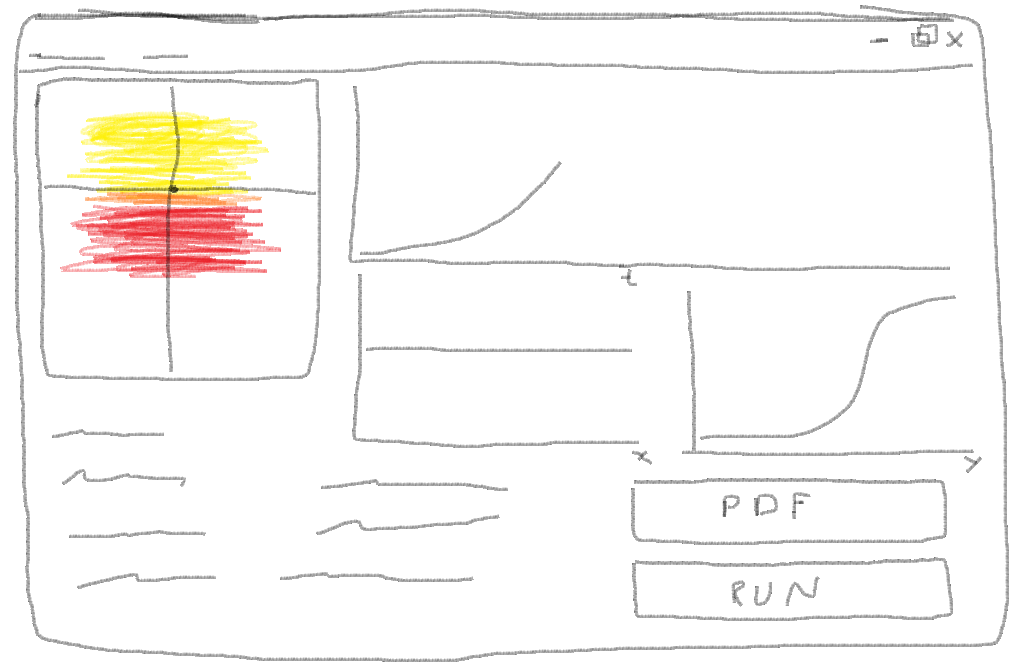 t
x
y
PDF
RUN